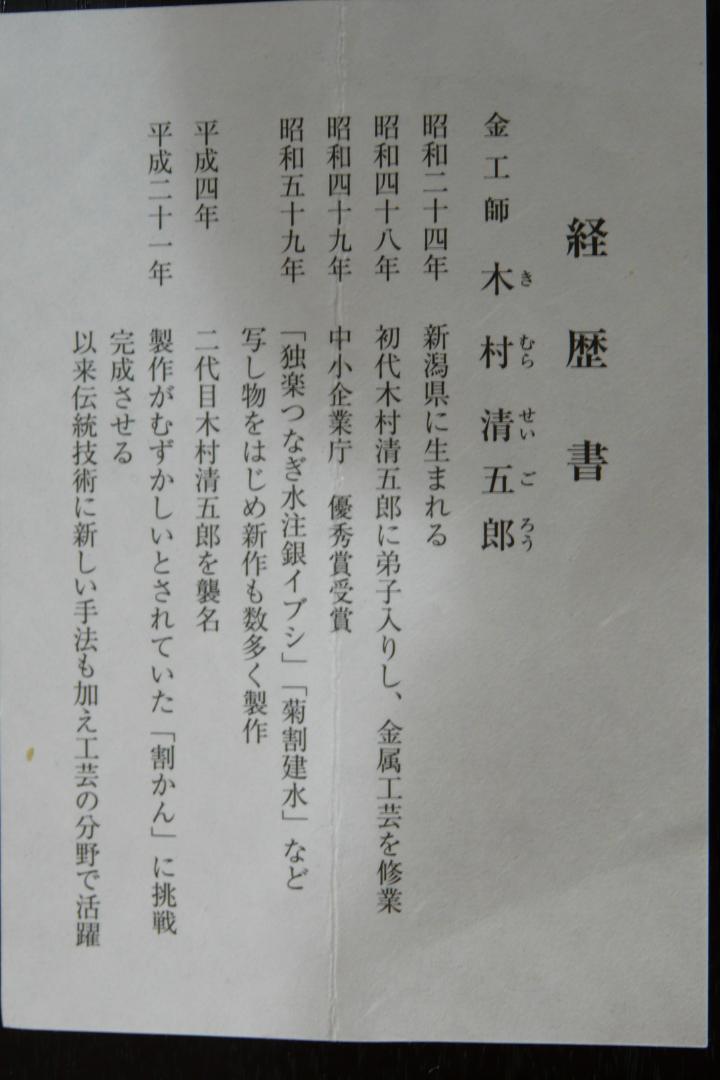 経歴書
金工師 木村清五郎
き むら せい ご ろう
昭和二十四年 新潟県に生まれる
昭和四十八年 初代木村清五郎に弟子入りし、金属工芸を修業
昭和四十九年 中小企業庁 優秀賞受賞
昭和五十九年 「独楽つなぎ水注銀イブシ」「菊割建水」など
写し物をはじめ新作も数多く製作
平成四年 二代目木村清五郎を襲名
平成二十一年 製作がむずかしいとされていた「割かん」に挑戦
完成させる
以来伝統技術に新しい手法も加え工芸の分野で活躍